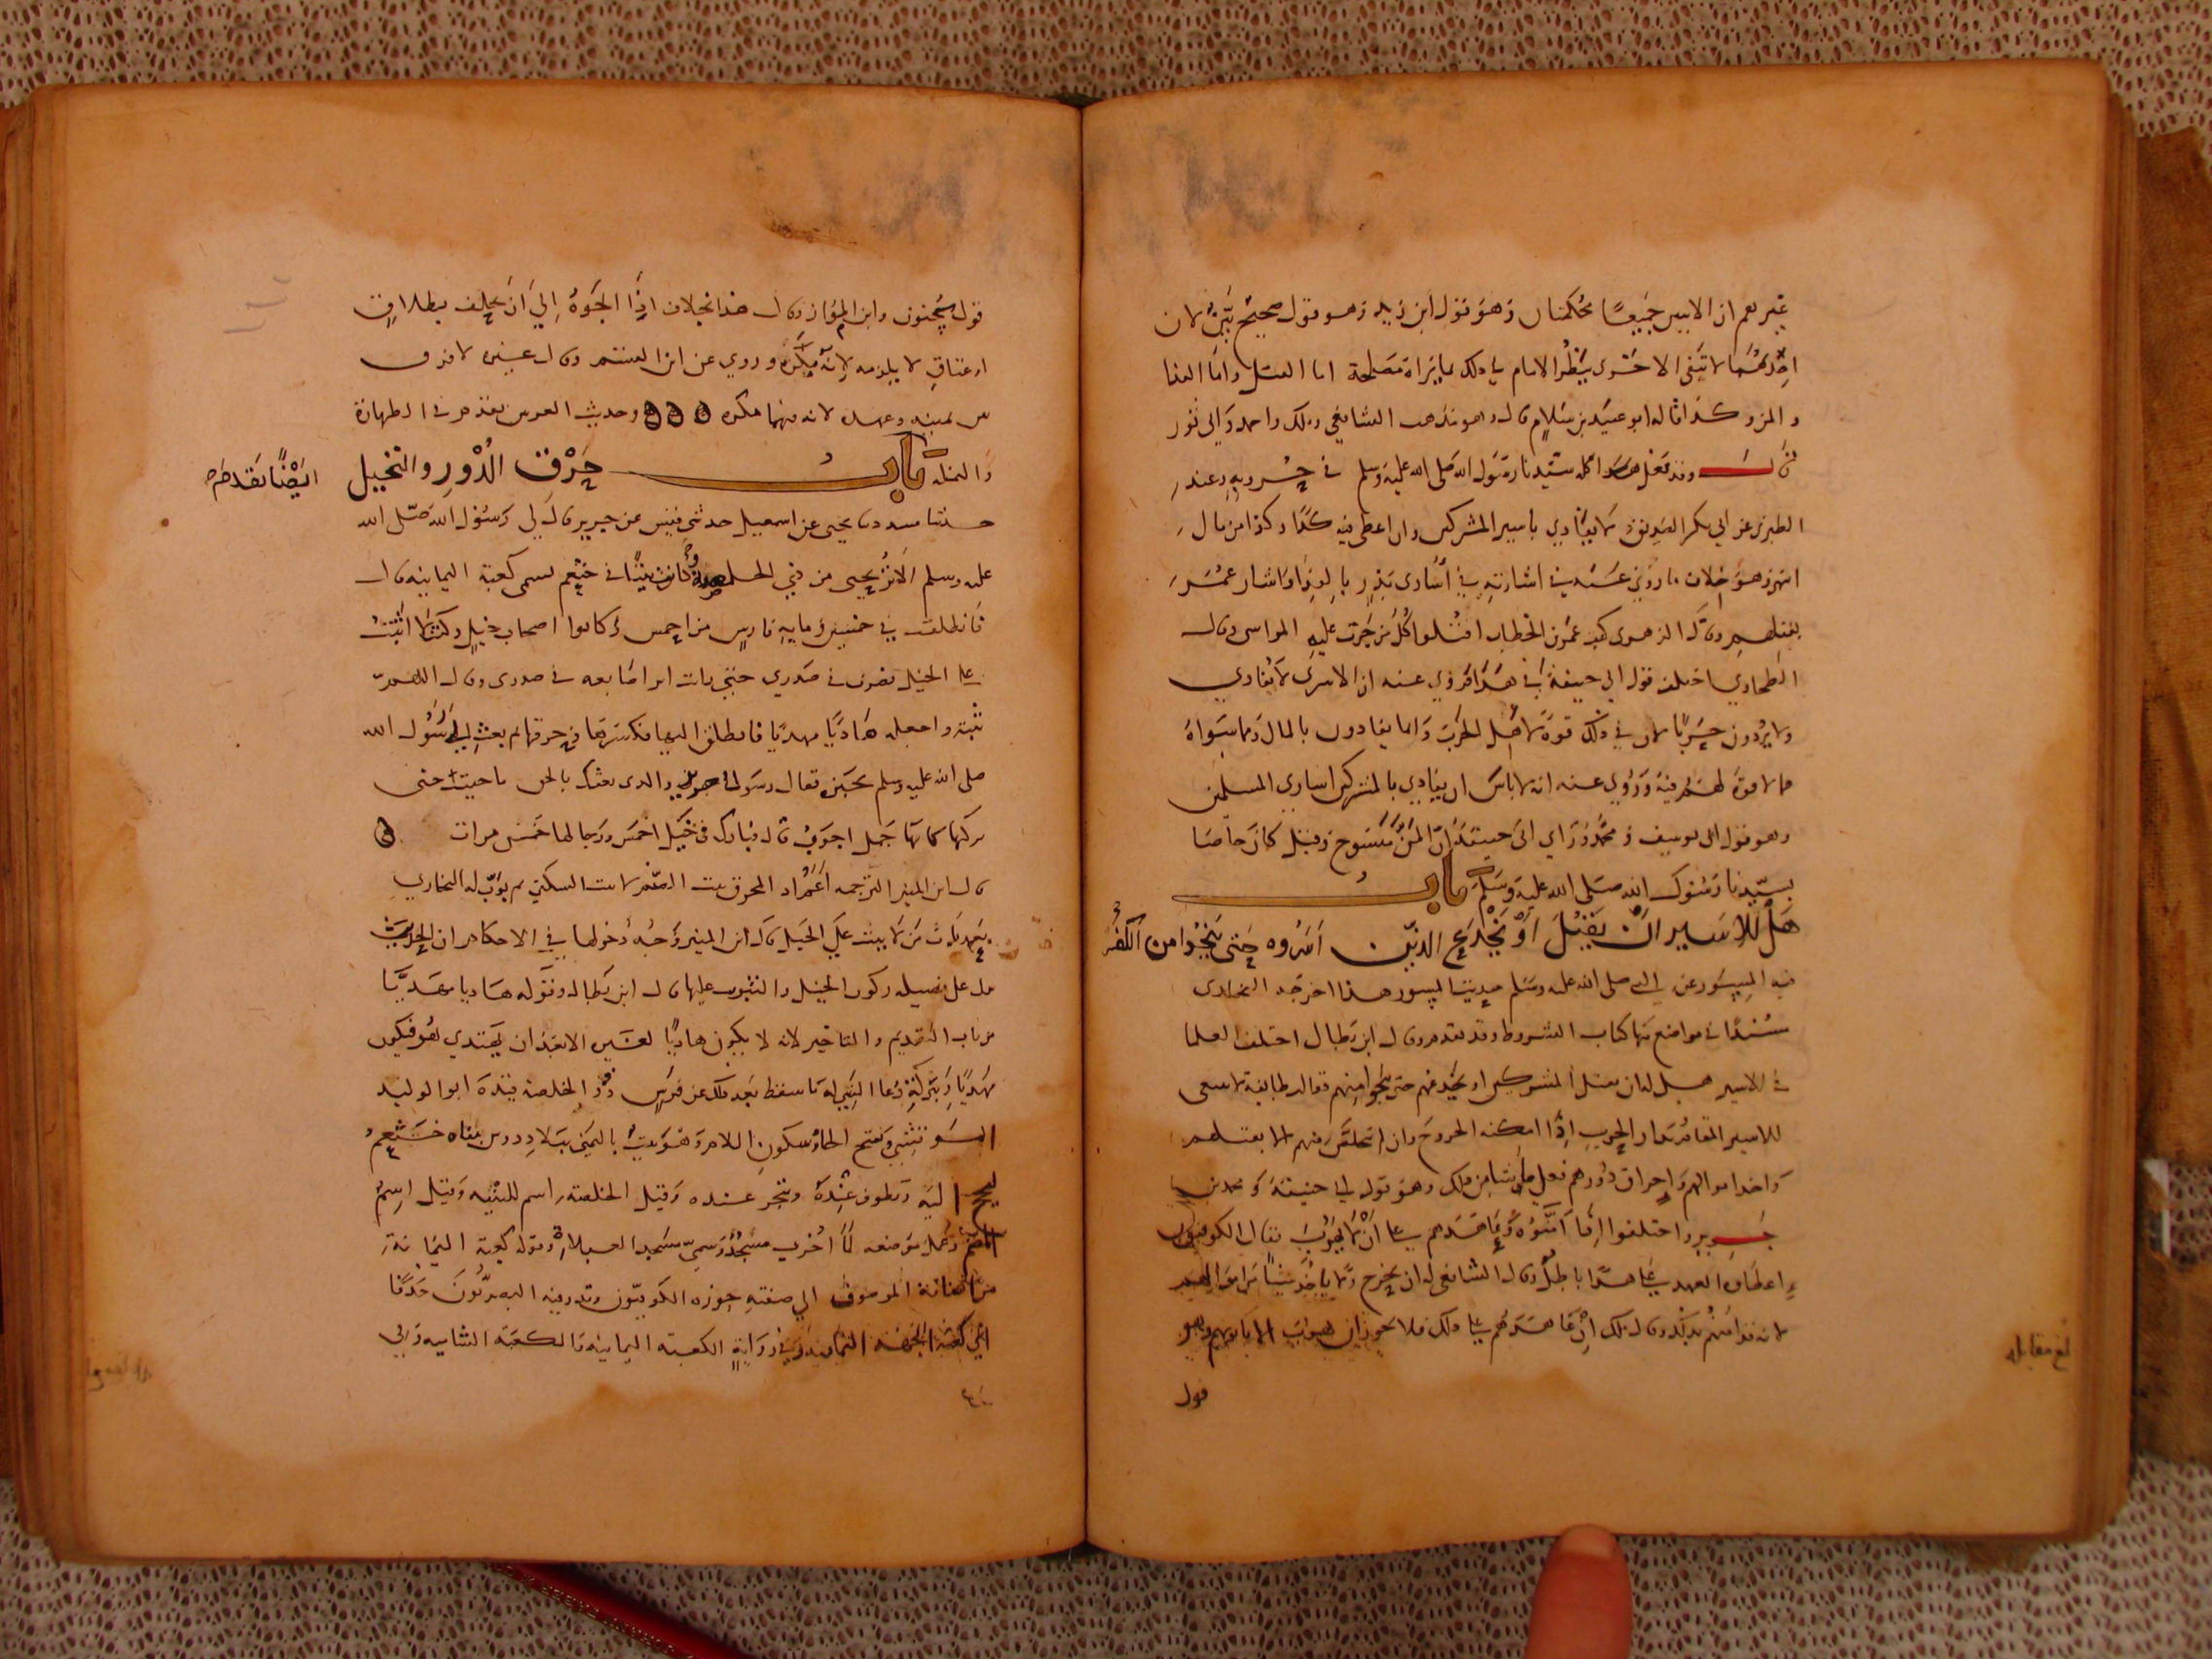 غيرهم ان الايتين جميعا محكمتان وهو قول ابن زيد وهو قول صحيح بين لان
احديهما لا تنفي الاخرى ينظر الامام في ذلك بما يراه مصلحة اما القتل واما الفدا
والمن وكذا قاله ابو عبيد بن سلام قال وهو مذهب الشافعي وملك واحمد وابي ثور
قال وقد فعل هذا كله سيدنا رسول الله صلى الله عليه وسلم في حروبه وعند
الطبري عن ابي بكر الصديق لا يفادي باسير المشركين وان اعطى فيه كذا وكذا من مال
انتهى وهو خلاف ما روي عنه في اشارته في اسارى بدر بالفدا واشار عمر
بقتلهم وقال الزهري كتب عمر بن الخطاب اقتلوا كل من جرت عليه المواسي وقال
الطحاوي اختلف قول ابي حنيفة في هذا فروي عنه ان الاسرى لا تفادي
ولا يردون حربا لان في ذلك قوة لاهل الحرب وانما يفادون بالمال وما سواه
مما لا قوة لهم فيه وروي عنه انه لا باس ان يفادي بالمشركين اساري المسلمين
وهو قول ابي يوسف و محمد وراي ابي حنيفة ان المن منسوخ وقيل كان خاصا
بسيدنا رسول الله صلى الله عليه وسلم باب
هل للاسير ان يقتل او يخدع الذين اسروه حتى ينجوا من الكفرة
فيه المسور عن النبي صلى الله عليه وسلم حديث المسور هذا اخرجه البخاري
مسندا في مواضع منها كتاب الشروط وقد تقدم وقال ابن بطال اختلف العلما
في الاسير هل له ان يقتل المشركين او يخدعهم حتى ينجوا منهم فقالت طايفة لا ينبغي
للاسير المقام بدار الحرب اذا امكنه الخروج وان لم يتخلص منهم الا بقتلهم
واخذ اموالهم واحراق دورهم فعل ما شا من ذلك وهو قول ابي حنيفة و محمد بن
جرير واختلفوا اذا امنوه وعاهدهم على ان لا يهرب فقال الكوفيون
اعطاوه العهد على هذا باطل وقال الشافعي له ان يخرج ولا ياخذ شيئا من اموالهم
لانه قد امنهم بذلك وقال ملك ان عاهدهم على ذلك فلا يجوز ان يهرب الا باذنهم وهو
قول
بلغ مقابله
قول سحنون وابن المواز وقال هذا بخلاف اذا الجوه الي ان يحلف بطلاق
او عتاق لا يلزمه لانه مكره وروي عن ابن القسم وقال غيره لا فرق
بين يمينه وعهده لانه فيهما مكره وحديث العرنيين تقدم في الطهارة
والمثلة باب حرق الدور والنخيل ايضا تقدم
حدثنا مسدد ثنا يحيى عن اسمعيل حدثني قيس عن جرير قال لي رسول الله صلى الله
عليه وسلم الا تريحني من ذي الخلصة وكان بيتا في خثعم يسمى كعبة اليمانية قال
فانطلقت في خمسين وماية فارس من احمس وكانوا اصحاب خيل وكنت لا اثبت
على الخيل فضرب في صدري حتى رايت اثر اصابعه في صدري وقال اللهم
ثبته واجعله هاديا مهديا فانطلق اليها فكسرها وحرقها ثم بعث الى رسول الله
صلى الله عليه وسلم يخبره فقال رسول جرير والذي بعثك بالحق ما جيتك حتى
تركتها كانها جمل اجوف قال فبارك في خيل احمس ورجالها خمس مرات
قال ابن المنير الترجمه
بعد ثلاث من لا يثبت على الخيل قال ابن المنير وجه دخولها في الاحكام ان الحديث
يدل على فضيلة ركوب الخيل والثبوت عليها قال ابن بطال وقوله هاديا مهديا
من باب التقديم والتاخير لانه لا يكون هاديا لغيره الا بعد ان يهتدي هو فيكون
مهديا وببركة دعا النبي له ما سقط بعد ذلك عن فرس وذو الخلصة قيده ابو الوليد
بفتح الخا وسكون اللام وهو بيت باليمن ببلاد دوس بناه خثعم
يحج اليه وتطوف عنده وتنحر عنده وقيل الخلصة اسم للبنية وقيل اسم
الصنم وجعل موضعه لما اخرب مسجد وسمي مسجد العبلا وقوله كعبة اليمانية
من اضافة الموصوف الي صفته جوزه الكوفيون وقدر فيه البصريون حذفا
اي كعبة الجهة اليمانية وفي رواية الكعبة اليمانية والكعبة الشامية وفي